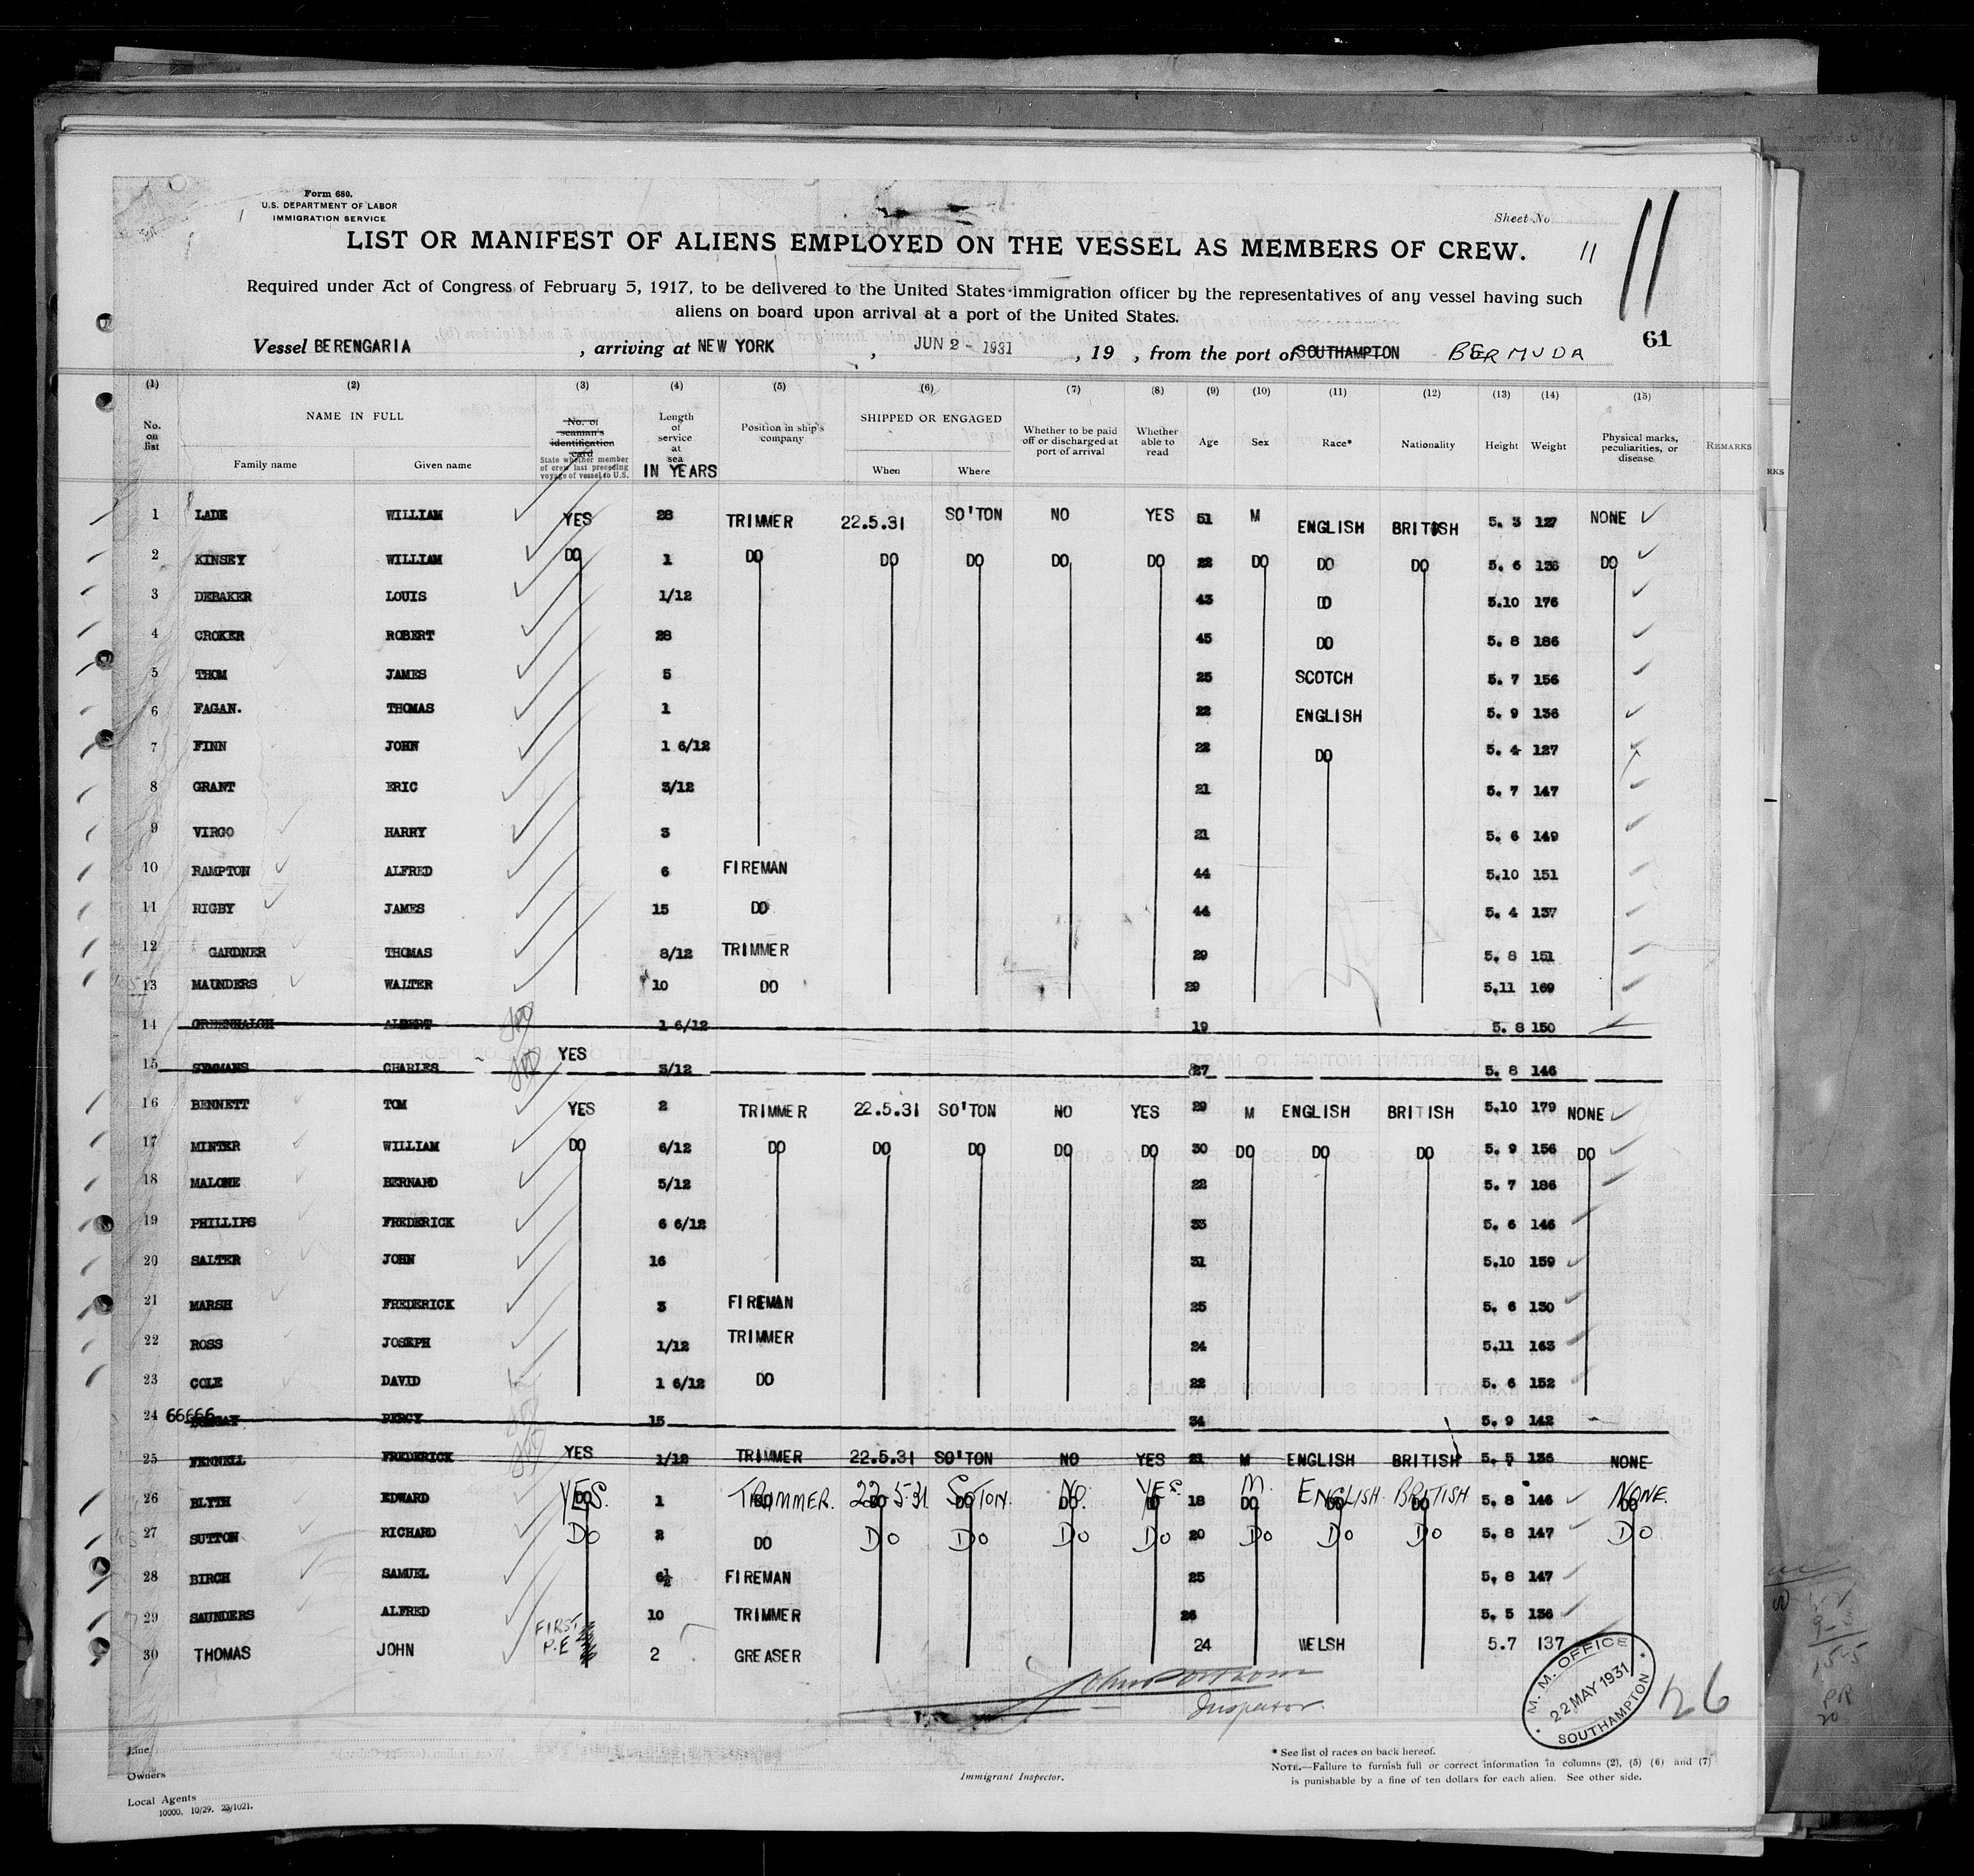 Form 680.
U.S. DEPARTMENT OF LABOR
IMMIGRATION SERVICE
Sheet No. 11
11
LIST OR MANIFEST OF ALIENS EMPLOYED ON THE VESSEL AS MEMBERS OF CREW.
Required under Act of Congress of February 5, 1917, to be delivered to the United States immigration officer by the representatives of any vessel having such
aliens on board upon arrival at a port of the United States.
61
Vessel BERENGARIA, arriving at NEW YORK, JUN 2 - 1931, 19 , from the port of SOUTHAMPTON BERMUDA
(1) (2) (3) (4) (5) (6) (7) (8) (9) (10) (11) (12) (13) (14) (15)
No. on list
NAME IN FULL
Family name Given name
No. of seaman's identification card
State whether member of crew last preceding voyage of vessel to U.S.
Length of service at sea
IN YEARS
Position in ship's company
SHIPPED OR ENGAGED
When Where
Whether to be paid off or discharged at port of arrival
Whether able to read
Age
Sex
Race*
Nationality
Height
Weight
Physical marks, peculiarities, or disease
REMARKS
1 LADE WILLIAM YES 28 TRIMMER 22.5.31 SO'TON NO YES 51 M ENGLISH BRITISH 5. 3 127 NONE
2 KINSEY WILLIAM DO 1 DO DO DO DO DO 22 DO DO DO 5. 6 136 DO
3 DEBAKER LOUIS 1/12 43 DO 5.10 176
4 CROKER ROBERT 28 45 DO 5. 8 186
5 THOM JAMES 5 25 SCOTCH 5. 7 156
6 FAGAN. THOMAS 1 22 ENGLISH 5. 9 136
7 FINN JOHN 1 6/12 22 DO 5. 4 127
8 GRANT ERIC 3/12 21 5. 7 147
9 VIRGO HARRY 3 21 5. 6 149
10 RAMPTON ALFRED 6 FIREMAN 44 5.10 151
11 RIGBY JAMES 15 DO 44 5. 4 137
12 GARDNER THOMAS 8/12 TRIMMER 29 5. 8 151
13 MAUNDERS WALTER 10 DO 29 5.11 169
14 GREENHALGH ALBERT 1 6/12 19 5. 8 150
15 CHARLES YES 3/12 27 5. 8 146
16 BENNETT TOM YES 2 TRIMMER 22.5.31 SO'TON NO YES 29 M ENGLISH BRITISH 5.10 179 NONE
17 MINTER WILLIAM DO 6/12 DO DO DO DO DO 30 DO DO DO 5. 9 156 DO
18 MALONE BERNARD 5/12 22 5. 7 186
19 PHILLIPS FREDERICK 6 6/12 33 5. 6 146
20 SALTER JOHN 16 31 5.10 159
21 MARSH FREDERICK 3 FIREMAN 25 5. 6 130
22 ROSS JOSEPH 1/12 TRIMMER 24 5.11 163
23 COLE DAVID 1 6/12 DO 22 5. 6 152
24 66666 PERCY 15 34 5. 9 142
25 FENNELL FREDERICK YES 1/12 TRIMMER 22.5.31 SO'TON NO YES 21 M ENGLISH BRITISH 5. 5 136 NONE
26 BLYTH EDWARD YES. 1 TRIMMER. 22-5-31 SOTON. NO. YES. 18 M. ENGLISH. BRITISH 5. 8 146 NONE.
27 SUTTON RICHARD DO 2 DO DO DO DO DO 20 DO DO DO 5. 8 147 DO
28 BIRCH SAMUEL 6½ FIREMAN 25 5. 8 147
29 SAUNDERS ALFRED 10 TRIMMER 26 5. 5 136
30 THOMAS JOHN FIRST P.E 2 GREASER 24 WELSH 5.7 137
Inspector
M. M. OFFICE
22 MAY 1931
SOUTHAMPTON
126
Line
Owners
Local Agents
10000, 10/29. 23/1021.
Immigrant Inspector.
* See list of races on back hereof.
NOTE.—Failure to furnish full or correct information in columns (2), (5) (6) and (7)
is punishable by a fine of ten dollars for each alien. See other side.